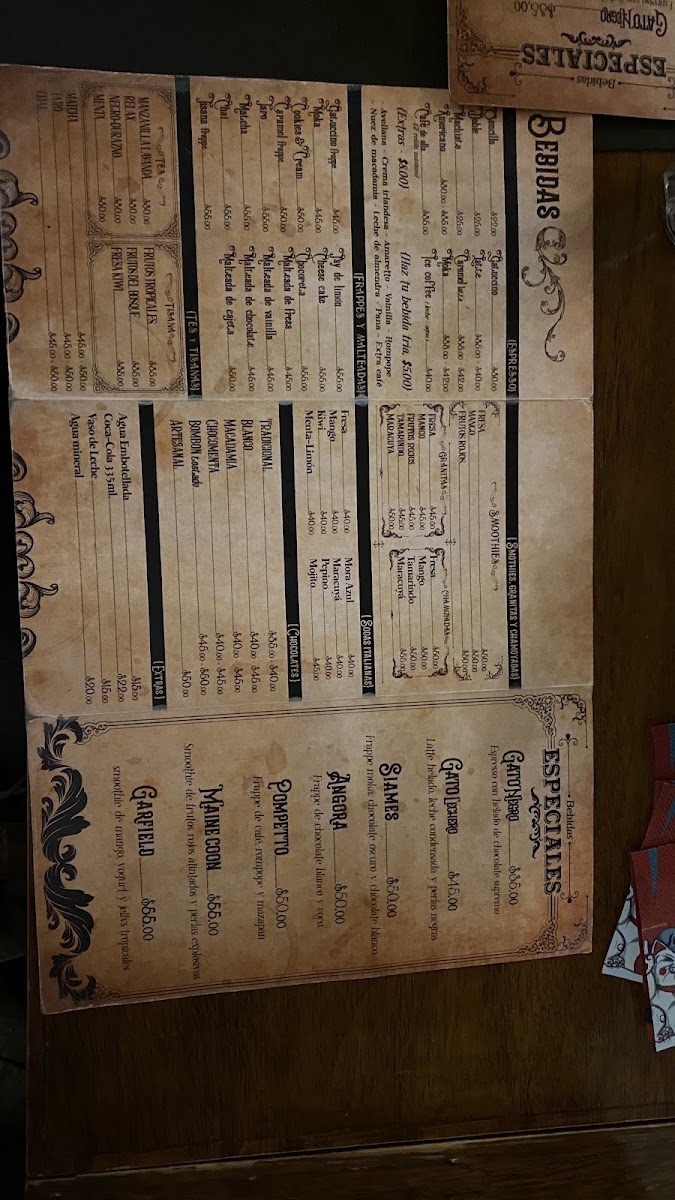 BEBIDAS
(ESPRESSO)
Sencillo $22.00
Doble $25.00
Machiato $25.00
Americano $30.00 $35.00
Café de olla
Gatuccino
Latte $35.00 $40.00
Caramel latte $38.00 $42.00
Moka $38.00 $42.00
Ice coffee $40.00
(Extras - $8.00) (Haz tu bebida fría, $5.00)
Avellana - Crema irlandesa - Amaretto - Vainilla - Rompope
- Nuez de macadamia - Leche de almendra - Pana - Extra café
(FRAPPES Y MALTEADAS)
Gatuccino frappe $45.00
Moka $45.00
Cookies & Cream $50.00
Caramel frappe $50.00
Taro $55.00
Matcha $55.00
Chai $55.00
frappe $55.00
Pay de limón $55.00
Cheese cake $55.00
Chocoreta $55.00
Malteada de fresa $45.00
Malteada de vainilla $45.00
Malteada de chocolate $45.00
Malteada de cajeta $50.00
(TÉS Y TISANAS)
TÉS
MANZANILLA LAVANDA $30.00
RELAX $30.00
NEGRO-DURAZNO $30.00
MENTA $30.00
TISANA
FRUTOS TROPICALES $35.00
FRUTOS DEL BOSQUE $35.00
FRESA KIWI $35.00
MATCHA $45.00 $50.00
TARO $45.00 $50.00
CHAI $45.00 $50.00
(SMOTHIES, GRANITAS Y CHAMOYADAS)
SMOOTHIES
FRESA $50.00
MANGO $50.00
FRUTOS ROJOS $50.00
GRANITAS
FRESA $45.00
MANGO $45.00
FRUTOS ROJOS $45.00
TAMARINDO $45.00
MARACUYA $50.00
CHAMOYADAS
Fresa $50.00
Mango $50.00
Tamarindo $50.00
Maracuyá $55.00
(SODAS ITALIANAS)
Fresa $40.00
Mango $40.00
Kiwi $40.00
Menta-Limón $40.00
Mora Azul $40.00
Maracuyá $40.00
Pepino $40.00
Mojito $45.00
(CHOCOLATES)
TRADICIONAL $35.00 $40.00
BLANCO $40.00 $45.00
MACADAMIA $40.00 $45.00
CHOCOMENTA $40.00 $45.00
BOMBÓN tostado $45.00 $50.00
ARTESANAL $50.00
(EXTRAS)
Agua Embotellada $15.00
Coca-Cola 335ml. $22.00
Vaso de Leche $15.00
Agua mineral $20.00
Bebidas
ESPECIALES
GATO NEGRO $55.00
Espresso con helado de chocolate supremo
GATO LECHERO $45.00
Latte helado, leche condensada y perlas negras
SIAMES $50.00
Frappe moka, chocolate oscuro y chocolate blanco.
ANGORA $50.00
Frappe de chocolate blanco y coco.
POMPETTO $50.00
Frappe de café, rompope y mazapan
MAINE COON $55.00
Smoothie de frutos rojos afrutados y perlas explosivas
GARFIELD $55.00
smoothie de mango, yogurt y jellys tropicales
Bebidas
ESPECIALES
GATO NEGRO $55.00